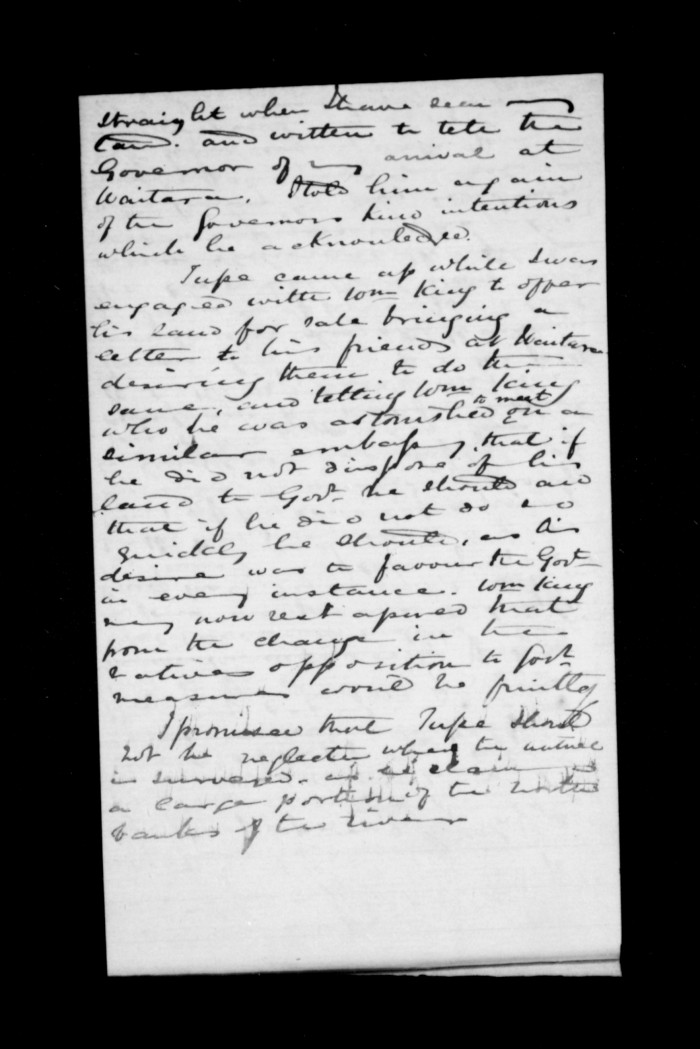 straight when I have seen my
land. and written to tell the
Governor of my arrival at
Waitara. I told him again
of the Governors kind intentions
which he acknowledged.
Tupe came up while I was
engaged with Wm King to offer
his land for sale bringing a
letter to his friends at Waitara
desiring them to do the
same, and telling Wm King
who he was astonished to meet on a
similar embassy, that if
he did not dispose of his
land to Govt he should and
that if he did not do so
quickly he should, as his
desire was to favour the Govt
in every instance. Wm King
may now rest assured that
from the change in the
natives opposition to Govt
measures would be
I promised that Tupe should
not be neglected when the
is surveyed. as
a large portion of the
banks of the river